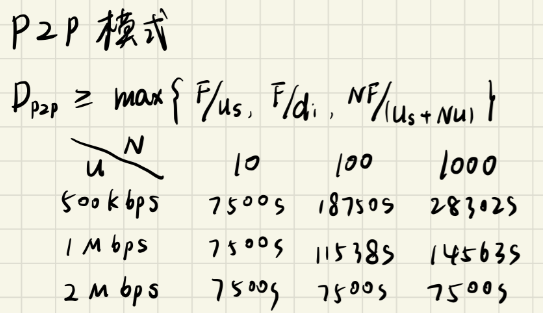 P2P 模式
D_{P2P} ≥ max{ F/u_s, F/d_i, NF/(u_s+Nu) }
u N 10 100 1000
500kbps 7500s 18750s 28302s
1Mbps 7500s 11538s 14563s
2Mbps 7500s 7500s 7500s